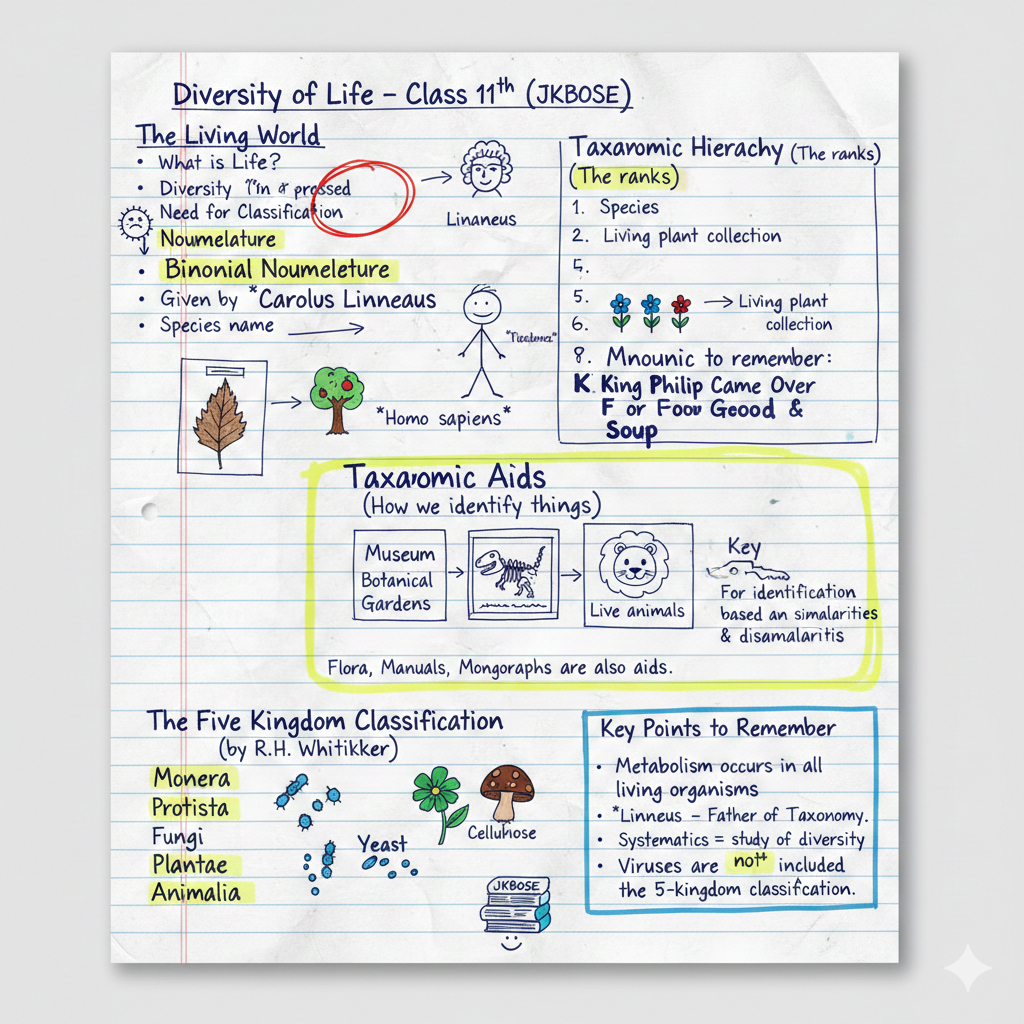 Diversity of Life – Class 11th (JKBOSE)
The Living World
• What is Life?
• Diversity pressed
Need for Classification
Noumelature
• Binonial Noumeleture
• Given by *Carolus Linneaus
• Species name
Linaneus
*Homo sapiens*
Taxaromic Hierachy (The ranks)
(The ranks)
1. Species
2. Living plant collection
5.
5. Living plant
6. collection
8. Mnounic to remember:
K. King Philip Came Over
F or Foou Geood &
Soup
Taxaromic Aids
(How we identify things)
Museum
Botanical
Gardens
Live animals
Key
For identification
based an simalarities
& disamalaritis
Flora, Manuals, Mongoraphs are also aids.
The Five Kingdom Classification
(by R.H. Whitikker)
Monera
Protista
Fungi
Plantae
Animalia
Yeast
JKBOSE
Key Points to Remember
• Metabolism occurs in all
living organisms
• *Linneus – Father of Taxonomy.
• Systematics = study of diversity
• Viruses are not included
the 5-kingdom classification.